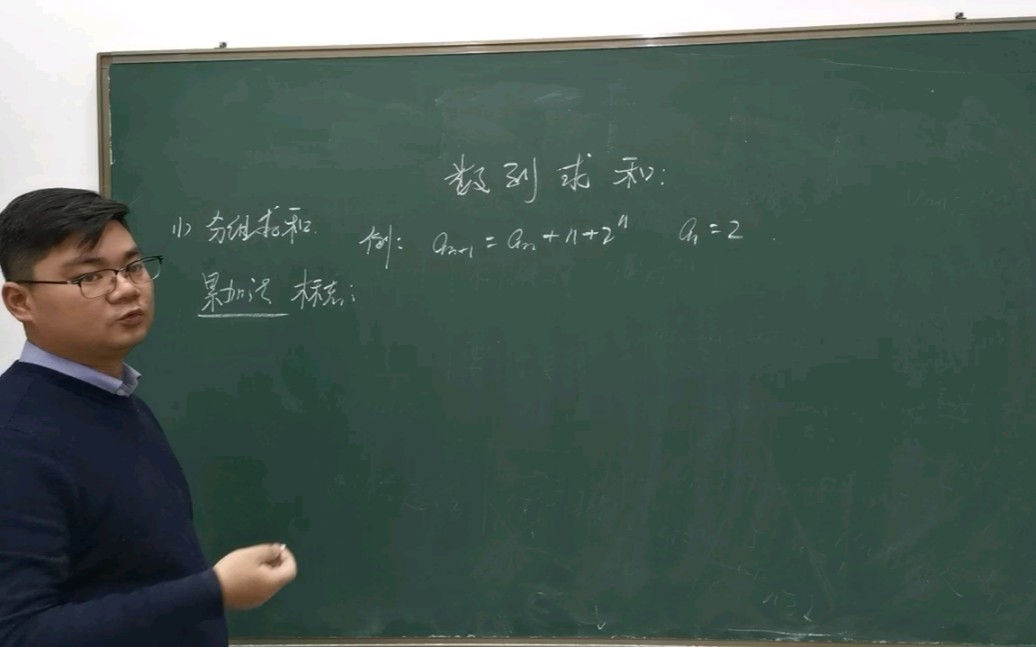 数列求和:
(1) 分组求和. 例: aₙ₊₁ = aₙ + n + 2ⁿ a₁ = 2
累加法 标志: